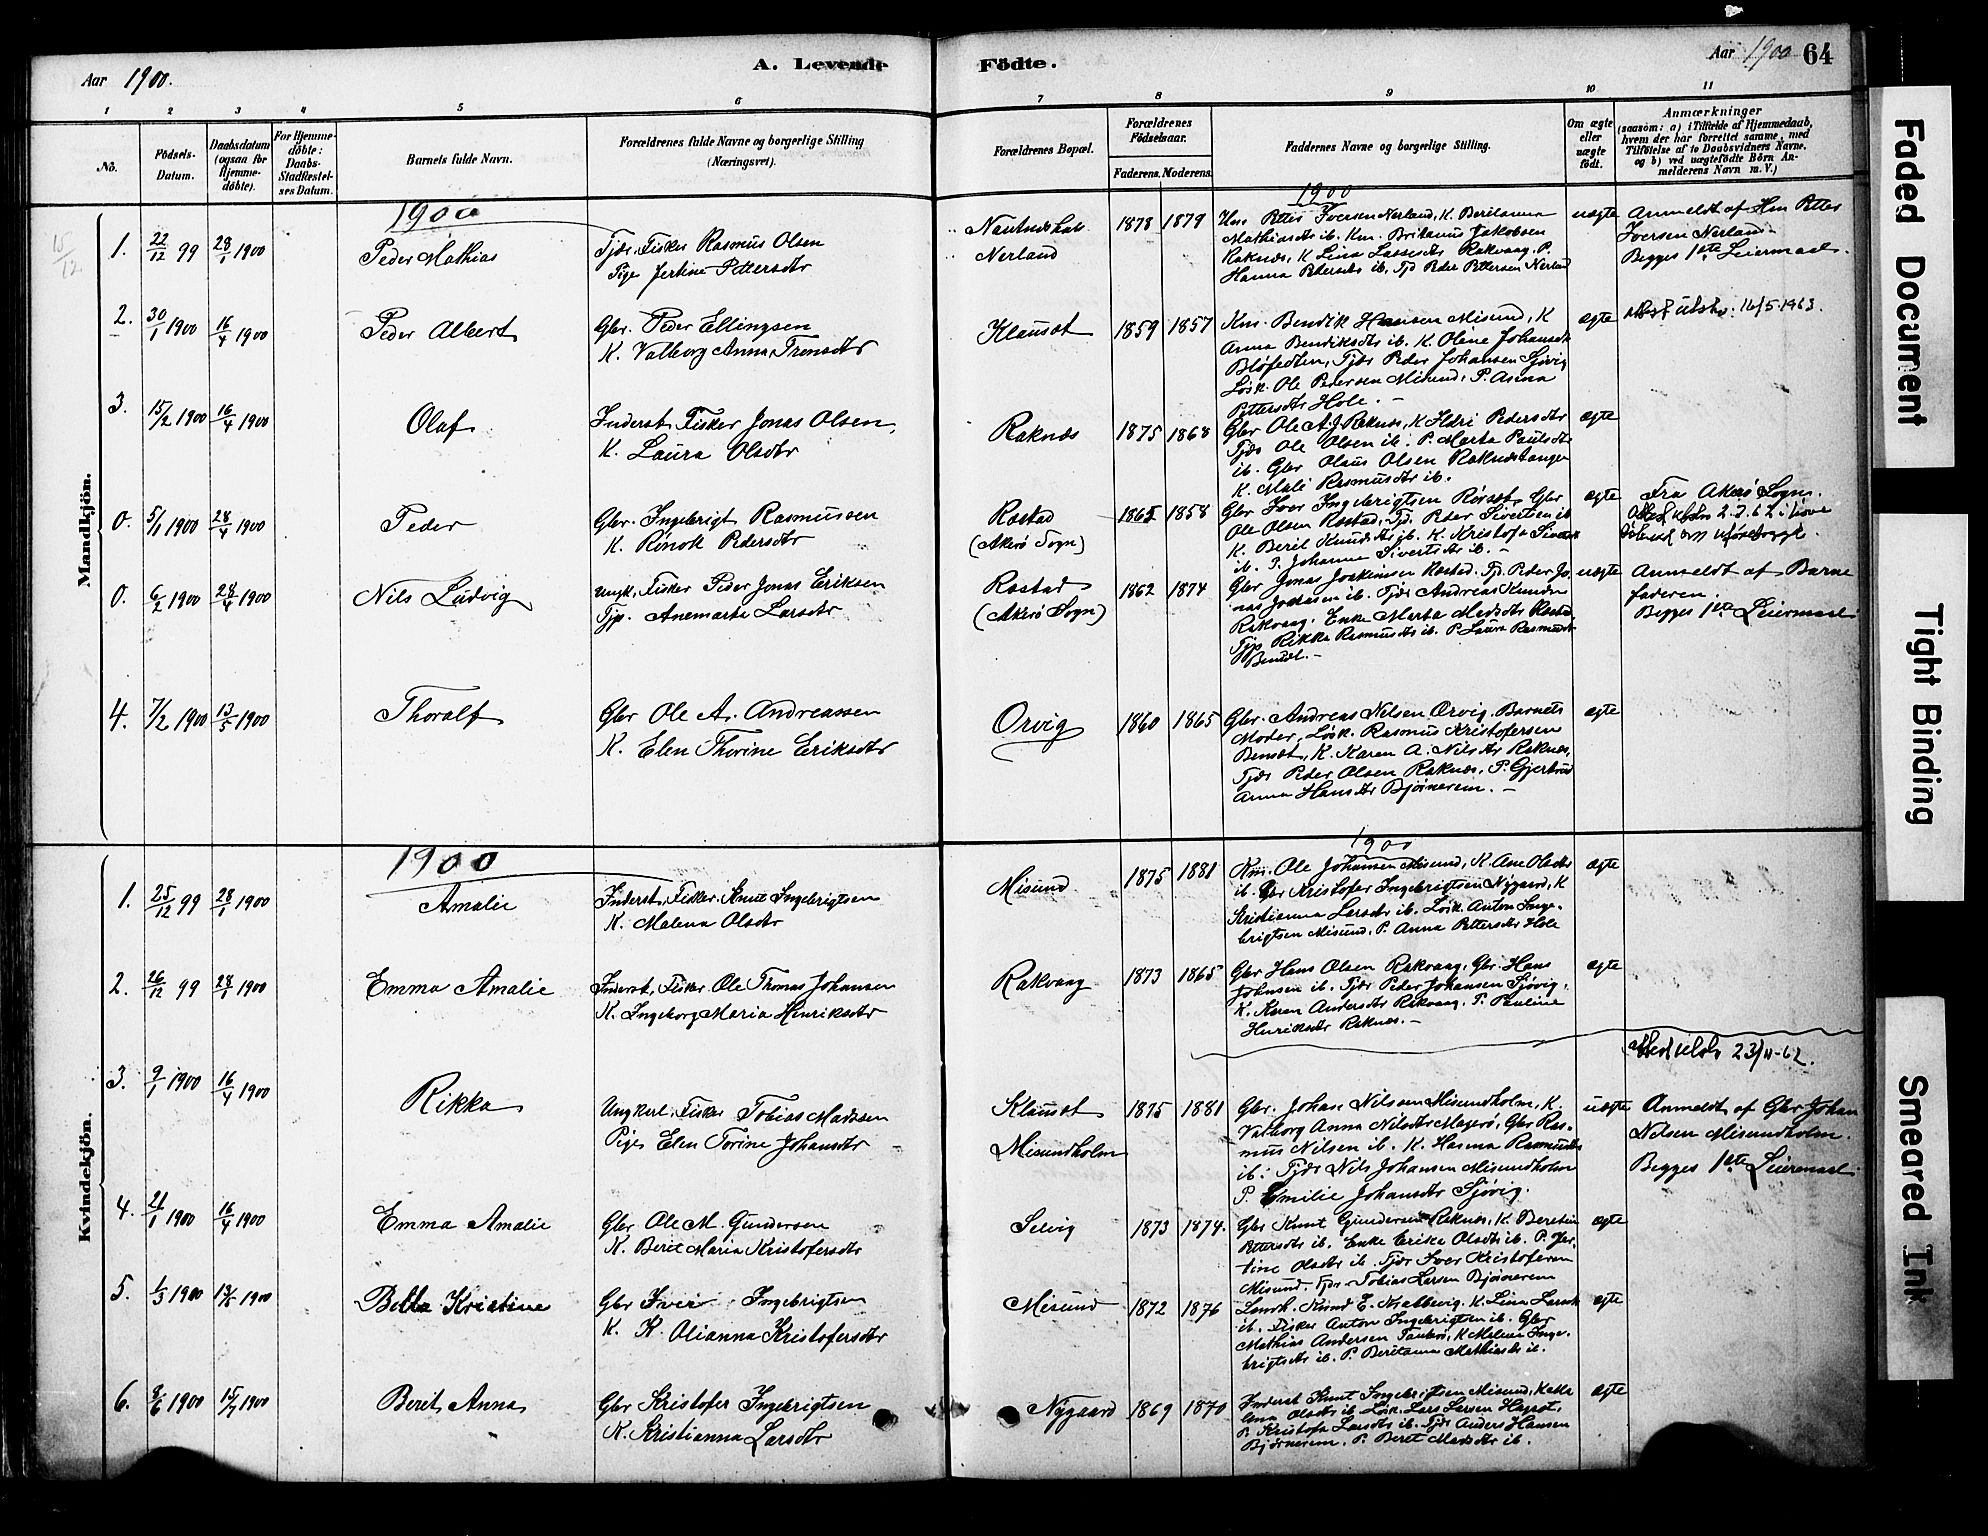 Aar 1900.
A. Levende Födte.
Aar 1900 64
1 2 3 4 5 6 7 8 9 10 11
No.
Födsels-Datum.
Daabsdatum (ogsaa for Hjemme-döbte).
For Hjemme-döbte: Daabs-Stadfæstel-ses Datum.
Barnets fulde Navn.
Forældrenes fulde Navne og borgerlige Stilling (Næringsvei).
Forældrenes Bopæl.
Forældrenes Födselsaar.
Faderens. Moderens.
Faddernes Navne og borgerlige Stilling.
Om ægte eller uægte födt.
Anmærkninger
(saasom: a) i Tilfælde af Hjemmedaab, hvem der har forrettet samme, med Tilföielse af to Daabsvidners Navne, og b) ved uægtefödte Börn Anmelderens Navn m. V.)
Mandkjön.
1900
1900
15/12
1. 22/12 99 28/1 1900 Peder Mathias
Tjdr. Fisker Rasmus Olsen
Pige Jertine Pettersdtr
Nerland
1878 1879
Petter Iversen Nerland, K. Beritanna
Mathiasdtr ib. Km. Britanus Jakobsen
Raknæs, K Lina Lassesdtr Rakvaag, P.
Hanna Petersdtr ib, Tjd Peder Pettersen Nerland
uægte
Anmeldt af Petter
Iversen Nerland
Begges 1ste Leiermaal.
2. 30/1 1900 16/4 1900 Peder Albert
Gbr. Peder Ellingsen
K. Valborg Anna Tronsdtr
Klausæt
1859 1857
Km. Bendik Hansen Misund, K
Anna Bendiksdtr ib. K. Olene Johansdtr
Tjdr Peder Johansen Sjøvig
Løsk. Ole Pedersen Misund, P. Anna
Pettersdtr Hole. -
ægte
utst. 16/5-1963.
3. 15/2 1900 16/4 1900 Olaf
Inderst, Fisker Jonas Olsen,
K. Laura Olsdtr
Raknæs
1875 1868
Gbr Ole A.J. Raknæs, K Pedersdtr
Tjdr Ole Olsen ib. P. Marta Paulsdtr
ib. Gbr Olaus Olsen Raknæstangen
K. Mali Rasmusdtr ib.
ægte
0. 5/1 1900 28/4 1900 Peder
Gbr. Ingebrigt Rasmussen
K. Rønok Pedersdtr
Rostad
(Akerø Sogn)
1865 1858
Gbr Iver Ingebrigtsen Rørsæt, Gbr
Ole Olsen Rostad, Tjd. Peder Sivertsen ib
K. Berit Knudsdtr ib. K. Kristofa
ib. P. Johanna Sivertsdtr ib. -
ægte
Fra Akerø Sogn.
0. 6/2 1900 28/4 1900 Nils Ludvig
Ungk, Fisker Peder Jonas Eriksen
Tjp. Anemarta Larsdtr
Rostad
(Akerø Sogn)
1862 1874
Gbr Jonas Joakimsen Rostad. Tjd. Peder Jo
nas ib. Tjdr Andreas Knudsen
Rakvaag. Enke Marta Madsdtr Rostad
Tjp Rikka Rasmusdtr ib. P. Laura Rasmusdtr
uægte
Anmeldt af Barne
faderen.
Begges 1ste Leiermaal
4. 7/2 1900 13/5 1900 Thoralf
Gbr Ole A. Andreassen
K. Elen Thorine Eriksdtr
Orvig
1860 1865
Gbr. Andreas Nilsen Orvig. Barnets
Moder, Løsk. Rasmus Kristofersen
K. Karen A. Nilsdtr Raknæs,
Tjdr Peder Olsen Raknæs, P. Gjertrud
Anna Hansdtr Bjørnerem. -
ægte
Kvindekjön.
1900
1900
1. 25/12 99 28/1 1900 Amalie
Inderst, Fisker. Knut Ingebrigtsen
K. Malena Olsdtr
Misund
1875 1881
Km. Ole Johansen Misund, K. Ane Olsdtr
ib. Gbr Kristofer Ingebrigtsen Nygaard, K
Kristianna Larsdtr ib. Løsk. Anton Inge-
brigtsen Misund, P. Anna Pettersdtr Hole
ægte
2. 26/12 99 28/1 1900 Emma Amalie
Inderst, Fisker. Ole Thomas Johansen
K. Ingeborg Maria Henriksdtr
Rakvaag
1873 1865
Gbr Hans Olsen Rakvaag, Gbr. Hans
Johnsen ib. Tjdr Peder Johansen Sjøvig,
K. Karen Andersdtr Rakvaag. P. Pauline
Henriksdtr Raknæs. -
ægte
23/11-62.
3. 9/1 1900 16/4 1900 Rikka
Ungkarl, Fisker Tobias Madssen
Pige Elen Torine Johansdtr
Klausæt
Misundholm
1875 1881
Gbr. Johan Nilsen Misundholm, K.
Valborg Anna Nilsdtr Magerø, Gbr Ras-
mus Nilsen ib. K. Hanna Rasmusdtr
ib. Tjdr Nils Johansen Misundholm
P. Emilie Johansdtr Sjøvig.
uægte
Anmeldt af Gbr Johan
Nilsen Misundholm.
Begges 1ste Leiermaal
4. 21/1 1900 16/4 1900 Emma Amalie
Gbr Ole M. Gundersen
K. Berit Maria Kristofersdtr
Selvig
1873 1874.
Gbr Knut Gundersen Raknæs, K. Beretin
Pettersdtr ib. Enke Erika Olsdtr ib. P. Jer-
tine Olsdtr ib. Tjdr Iver Kristofersen
Misund, Tjdr. Tobias Larsen Bjørnerem
ægte
5. 1/3 1900 13/5 1900 Bella Kristine
Gbr Iver Ingebrigtsen
K. K. Olianna Kristofersdtr
Misund
1872 1876
K. Lina Larsdtr
ib. Fisker Anton Ingebrigtsen ib. Gbr
Mathias Andersen K Malena Inge-
brigtsdtr ib. P. Beritanna Mathiasdtr ib.
ægte
6. 8/6 1900 15/7 1900 Berit Anna
Gbr Kristofer Ingebrigtsen
K. Kristianna Larsdtr
Nygaard
1869 1870
Inderst Knut Ingebrigtsen Misund,
Olsdtr ib. Løsk. Lars Larsen
P. Kristofa Larsdtr ib. Tjdr Anders Hansen
Bjørnerem. P. Beret Madsdtr ib.
ægte
Faded Document
Tight Binding
Smeared Ink